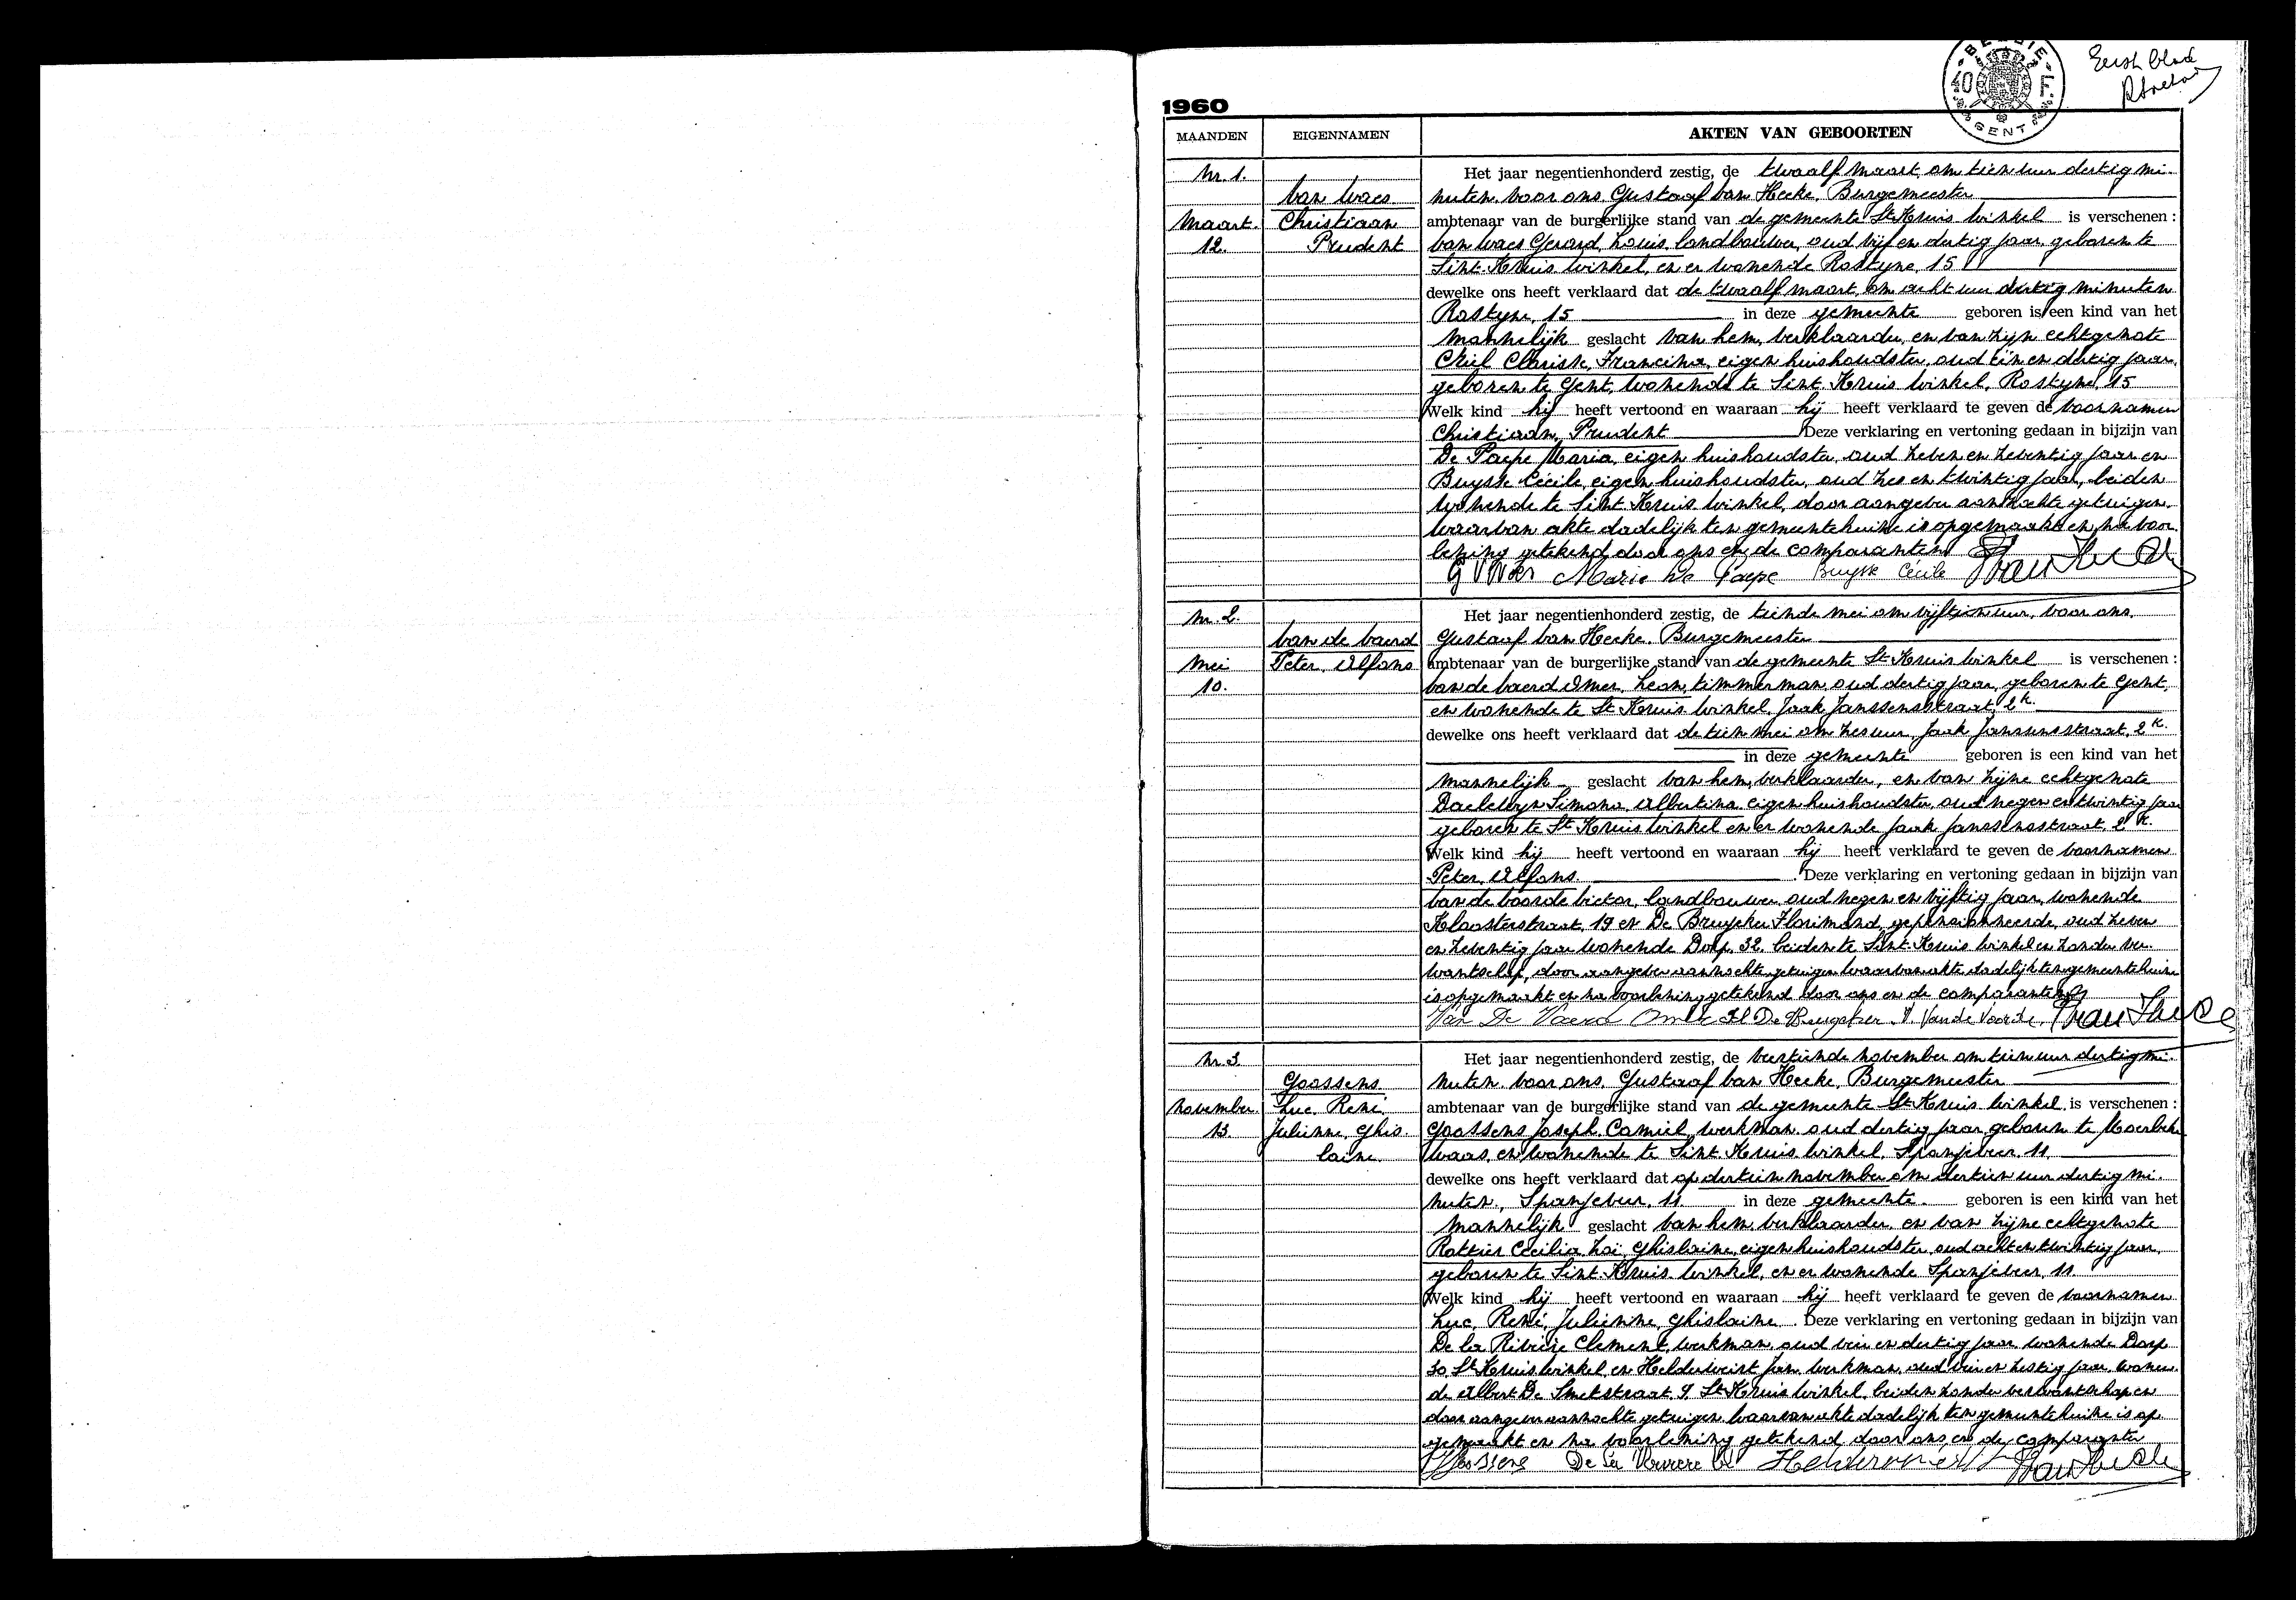 BELGIE 40 F. GENT
Eerste blad
1960
MAANDEN EIGENNAMEN AKTEN VAN GEBOORTEN
Nr. 1. Het jaar negentienhonderd zestig, de twaalf maart om tien uur dertig mi-
Van Waes nuten voor ons Gustaaf Van Hecke, Burgemeester
Maart. Christiaan ambtenaar van de burgerlijke stand van de gemeente St Kruis Winkel is verschenen :
12. Prudent Van Waes Gerard, Louis, landbouwer, oud vijf en dertig jaar, geboren te
Sint-Kruis Winkel, en er wonende Rostyne, 15
dewelke ons heeft verklaard dat de twaalf maart om acht uur dertig minuten
Rostyne, 15 in deze gemeente geboren is een kind van het
mannelijk geslacht van hem, verklaarder, en van zijn echtgenote
Criel Clarisse, Francina, eigen huishoudster, oud één en dertig jaar,
geboren te Gent, wonende te Sint-Kruis Winkel, Rostyne, 15
Welk kind hij heeft vertoond en waaraan hij heeft verklaard te geven de voornamen
Christiaan, Prudent Deze verklaring en vertoning gedaan in bijzijn van
De Paepe Maria, eigen huishoudster, oud zeven en zeventig jaar en
Buysse Cécile, eigen huishoudster, oud zes en twintig jaar, beiden
wonende te Sint-Kruis Winkel, door aangever aanzochte getuigen.
Waarvan akte dadelijk ten gemeentehuize is opgemaakt en na voor
lezing getekend door ons en de comparanten
G V Waes Marie De Paepe Buysse Cécile GVan Hecke
Nr. 2. Het jaar negentienhonderd zestig, de tiende mei om vijftien uur, voor ons,
Van de Vaerd Gustaaf Van Hecke, Burgemeester
Mei Peter, Alfons ambtenaar van de burgerlijke stand van de gemeente St Kruis Winkel is verschenen :
10. Van de Vaerd Omer, Leon, timmerman, oud dertig jaar, geboren te Gent,
en wonende te St Kruis Winkel, Jaak Janssensstraat, 2K.
dewelke ons heeft verklaard dat de tien mei om zes uur, Jaak Janssensstraat, 2K.
in deze gemeente geboren is een kind van het
mannelijk geslacht van hem, verklaarder, en van zijne echtgenote
Daelewyn Simona, Albertina, eigen huishoudster, oud negen en twintig jaar
geboren te St Kruis Winkel en er wonende Jaak Janssensstraat, 2K.
Welk kind hij heeft vertoond en waaraan hij heeft verklaard te geven de voornamen
Peter, Alfons. Deze verklaring en vertoning gedaan in bijzijn van
Van de Voorde Victor, landbouwer, oud negen en vijftig jaar, wonende
Kloosterstraat, 19 en De Bruycker Florimond, gepensioneerde, oud zeven
en zeventig jaar wonende Dorp, 32, beiden te Sint-Kruis Winkel en zonder ver-
wantschap, door aangever aanzochte getuigen waarvan akte dadelijk ten gemeentehuize
is opgemaakt en na voorlezing getekend door ons en de comparanten
Van De Vaerd Omer Fl De Bruycker V. Van de Voorde GVan Hecke
Nr. 3. Het jaar negentienhonderd zestig, de veertiende november om tien uur dertig mi-
Goossens nuten voor ons, Gustaaf Van Hecke, Burgemeester
November. Luc, René, ambtenaar van de burgerlijke stand van de gemeente St Kruis Winkel, is verschenen :
13. Julienne, Ghis- Goossens Joseph, Camiel, werkman, oud dertig jaar, geboren te Moerbeke
laine. Waas, en wonende te Sint-Kruis Winkel, Spanjeveer, 11.
dewelke ons heeft verklaard dat op dertien november om dertien uur dertig mi-
nuten, Spanjeveer, 11. in deze gemeente geboren is een kind van het
mannelijk geslacht van hem, verklaarder, en van zijne echtgenote
Rottier Cecilia, Zoë, Ghislaine, eigen huishoudster, oud acht en twintig jaar,
geboren te Sint-Kruis Winkel, en er wonende Spanjeveer, 11.
Welk kind hij heeft vertoond en waaraan hij heeft verklaard te geven de voornamen
Luc, René, Julienne, Ghislaine. Deze verklaring en vertoning gedaan in bijzijn van
De la Rivière Clement, werkman, oud drie en dertig jaar, wonende Dorp
30 St Kruis Winkel en Helderweirt Jan, werkman, oud drie en zestig jaar, wonen-
de Albert De Smetstraat, 9 St Kruis Winkel, beiden zonder verwantschap en
door aangever aanzochte getuigen, waarvan akte dadelijk ten gemeentehuize is op
gemaakt en na voorlezing getekend door ons en de comparanten
Goossens De la Rivière Cl Helderweirt GVan Hecke